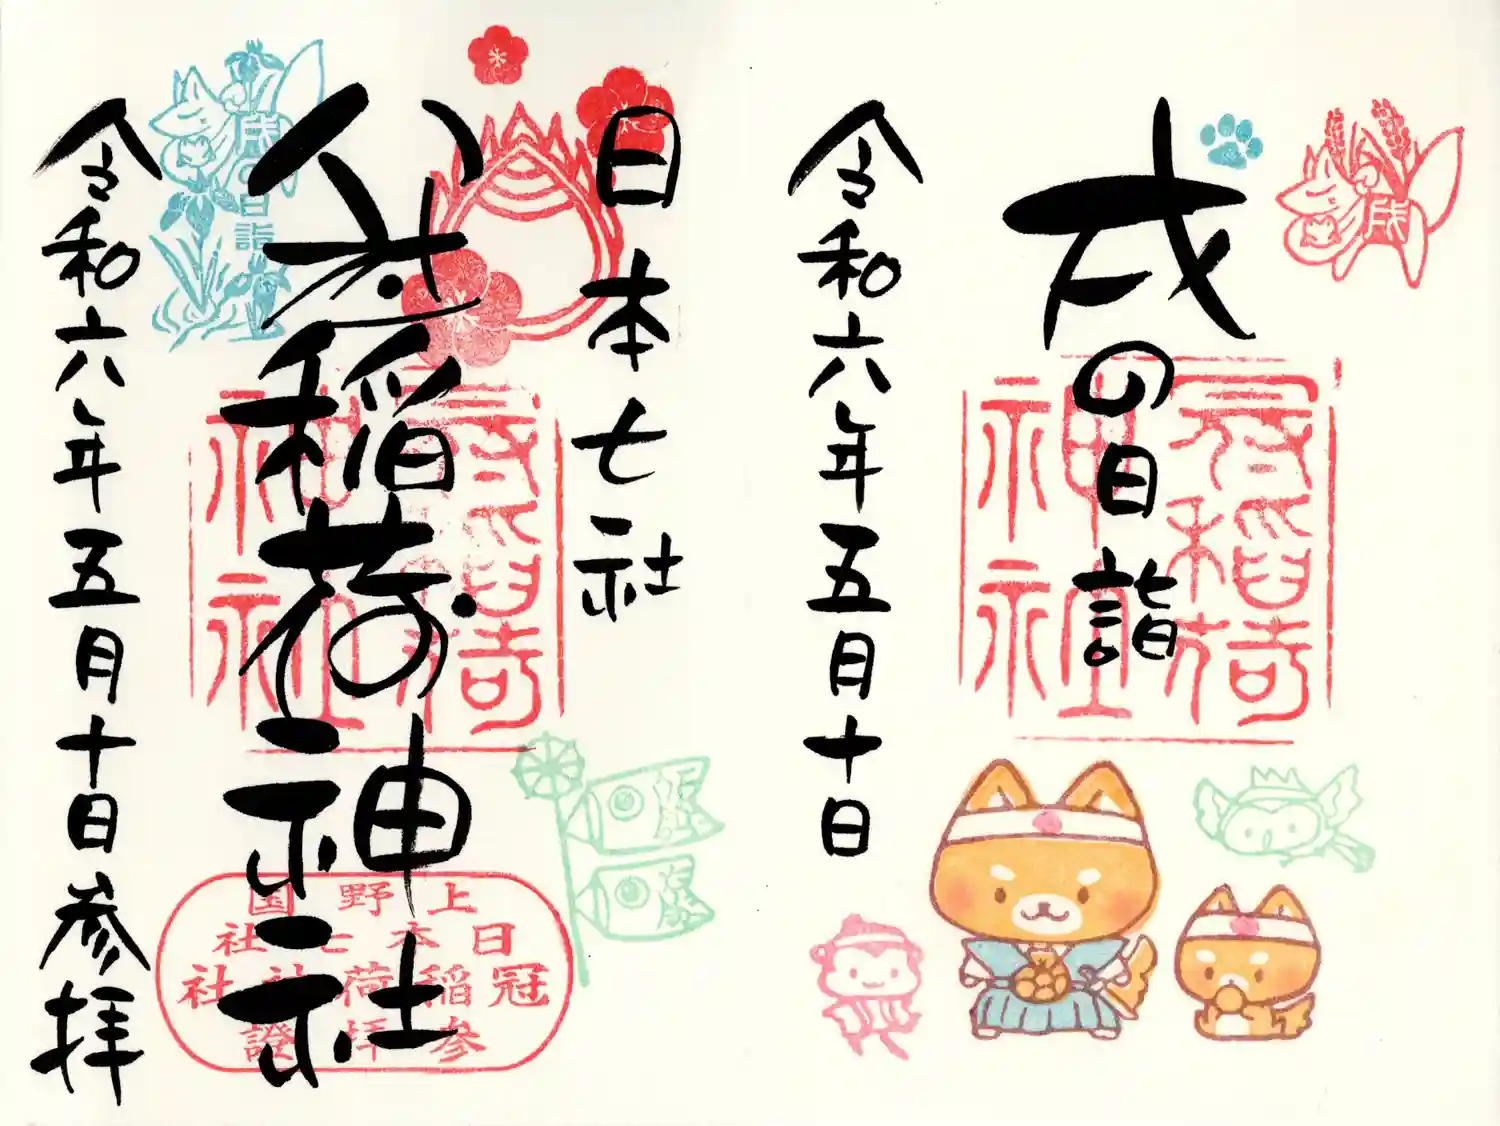 戌の日詣
冠稲荷神社
令和六年五月十日
戌
日本七社
冠稲荷神社
冠稲荷神社
令和六年五月十日参拝
戌の日詣
上野国
日本七社
冠稲荷神社
参拝證